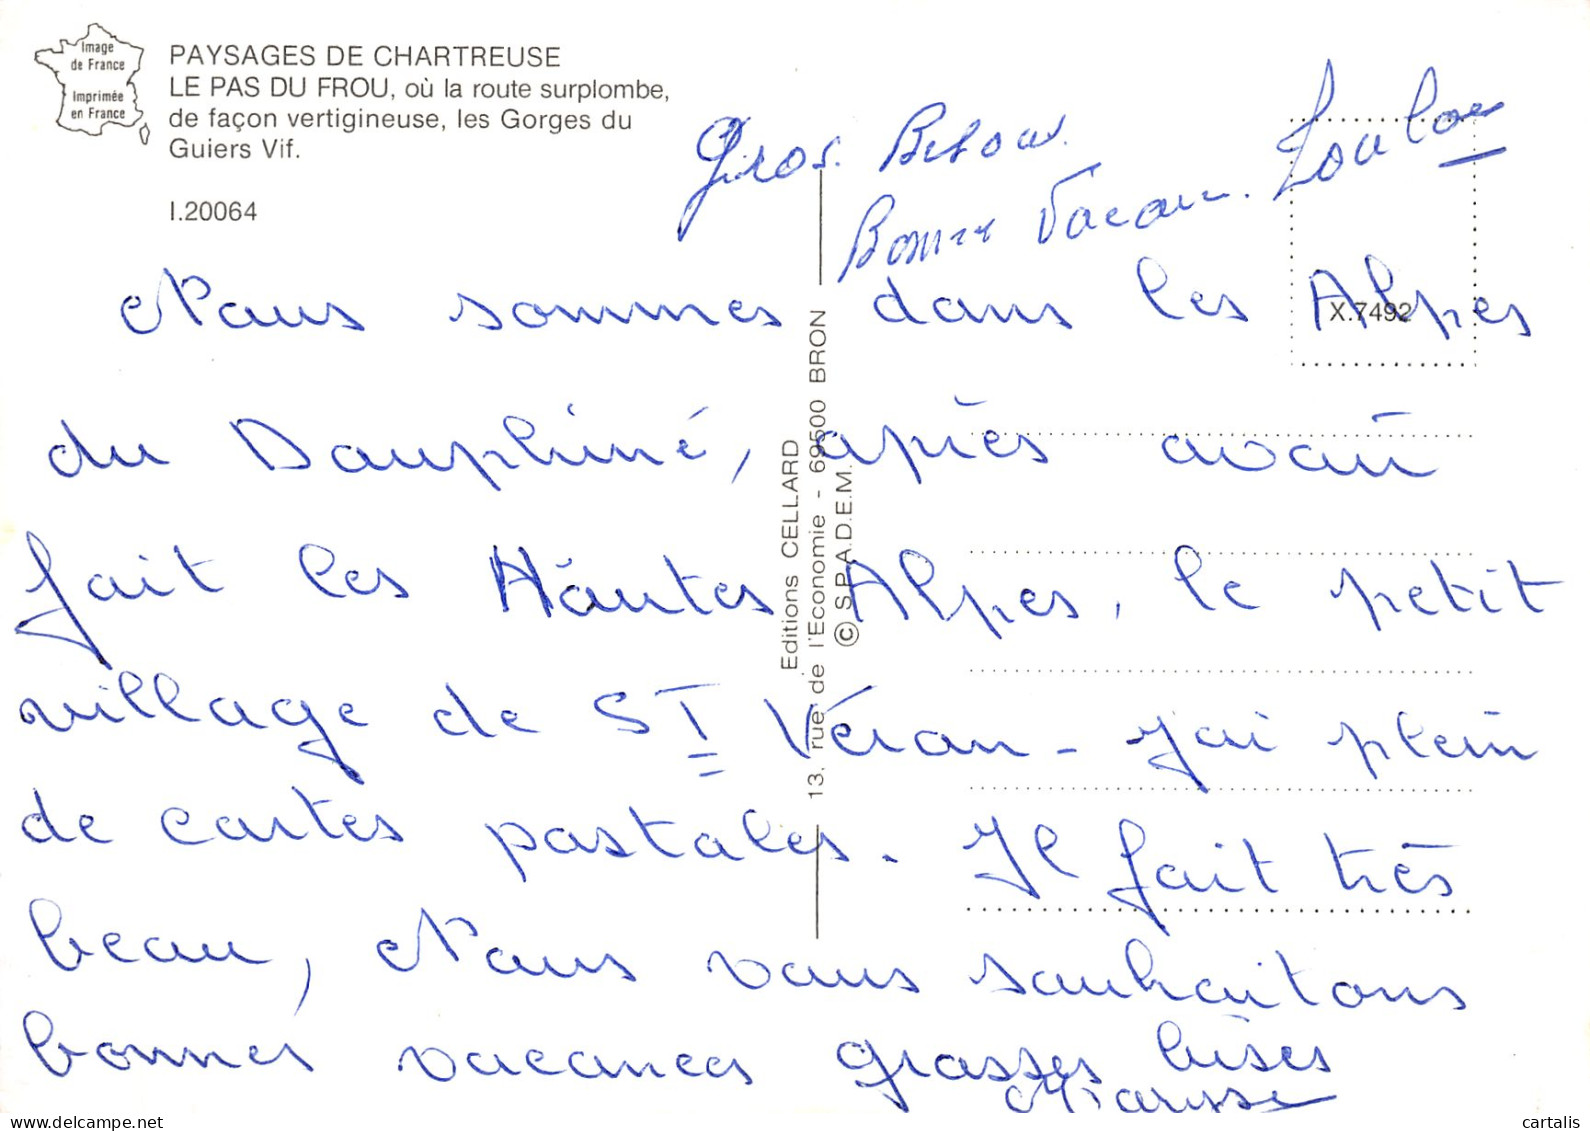 Image
de France
Imprimée
en France
PAYSAGES DE CHARTREUSE
LE PAS DU FROU, où la route surplombe,
de façon vertigineuse, les Gorges du
Guiers Vif.
I.20064
X.7492
Editions CELLARD
13, rue de l'Economie - 69500 BRON
© S.P.A.D.E.M.
Gros.
Bonne Vacan.
Nous sommes dans les Alpes
du Dauphiné, après avoir
fait les Hautes Alpes, le petit
village de ST Véran - J'ai plein
de cartes postales. Il fait très
beau, Nous vous souhaitons
bonnes vacances grosses bises
delcampe.net
cartalis